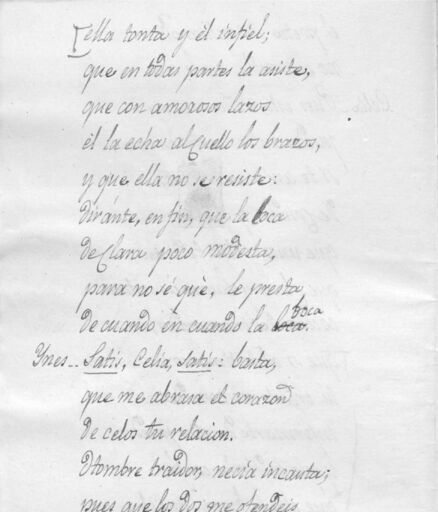 ella tonta y él infiel;
que en todas partes la asiste,
que con amorosos lazos
él la echa al Cuello los brazos,
y que ella no se resiste:
diránte, en fin, que la loca
de Clara poco modesta,
para no sé qué, le presta
de cuando en cuando la loca. boca
Ynes.. Satis, Celia, satis: basta,
que me abrasa el corazon
de celos tu relacion.
Hombre traidor, necia incauta;
pues que los dos me ofendeis